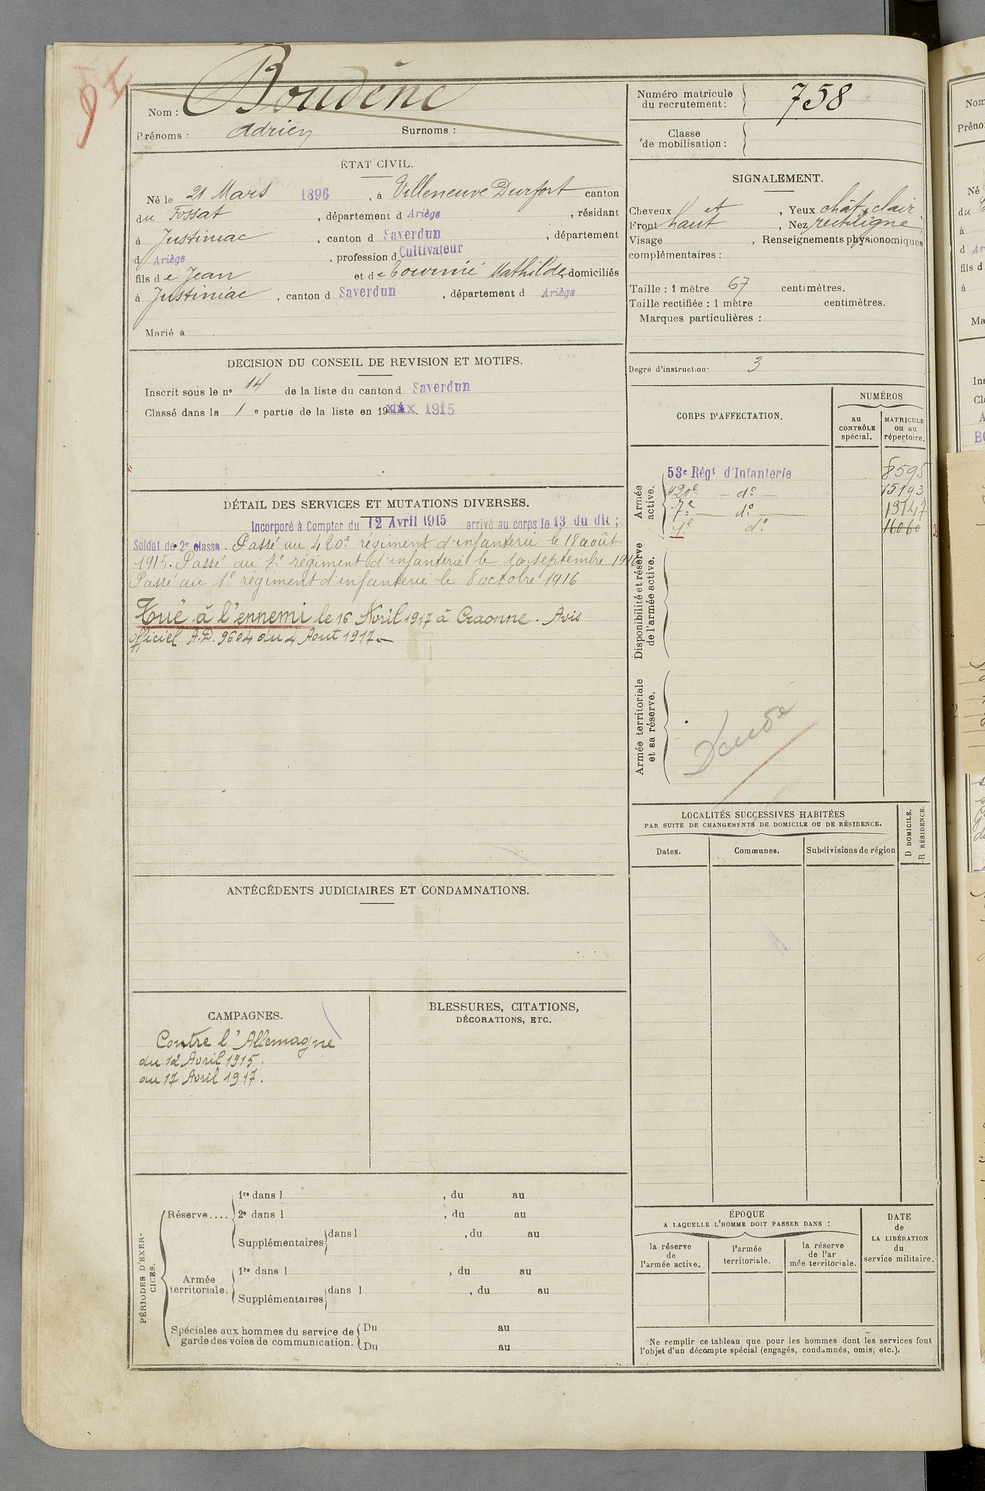 Nom : Boudène
Prénoms : Adrien Surnoms :
Numéro matricule du recrutement : 758
Classe de mobilisation :
ÉTAT CIVIL.
Né le 21 Mars 1896, à Villeneuve Durfort canton
du Fossat, département d Ariège, résidant
à Justiniac, canton d Saverdun, département
d Ariège, profession d Cultivateur
fils de Jean et de Mathilde, domiciliés
à Justiniac, canton d Saverdun, département d Ariège
Marié à
SIGNALEMENT.
Cheveux et, Yeux chât. clair
Front haut, Nez rectiligne
Visage, Renseignements physionomiques
complémentaires :
Taille : 1 mètre 67 centimètres.
Taille rectifiée : 1 mètre centimètres.
Marques particulières :
Degré d'instruction· 3
DECISION DU CONSEIL DE REVISION ET MOTIFS.
Inscrit sous le n° 14 de la liste du canton d Saverdun
Classé dans la 1 e partie de la liste en 19 1915
CORPS D'AFFECTATION.
NUMÉROS
au CONTRÔLE spécial.
MATRICULE ou au répertoire.
Armée active.
53e Régt d'Infanterie 8595
420e — do — 15193
7e — do — 13147
1e do 16060
Disponibilité et réserve de l'armée active.
Armée territoriale et sa réserve.
DÉTAIL DES SERVICES ET MUTATIONS DIVERSES.
Incorporé à Compter du 12 Avril 1915 arrivé au corps le 13 du dit ;
Soldat de 2e classe. Passé au 420e régiment d'infanterie le 18 août
1915. Passé au 7e régiment d'infanterie le 10 septembre 1916
Passé au 1e régiment d'infanterie le 8 octobre 1916
Tué à l'ennemi le 16 Avril 1917 à Craonne. Avis
officiel A.D. 9604 du 4 Aout 1917
LOCALITÉS SUCCESSIVES HABITÉES
PAR SUITE DE CHANGEMENTS DE DOMICILE OU DE RÉSIDENCE.
Dates. Communes. Subdivisions de région
D DOMICILE.
R RÉSIDENCE.
ANTÉCÉDENTS JUDICIAIRES ET CONDAMNATIONS.
CAMPAGNES.
Contre l'Allemagne
du 12 Avril 1915.
au 17 Avril 1917.
BLESSURES, CITATIONS,
DÉCORATIONS, ETC.
PÉRIODES D'EXERCICES.
Réserve....
1re dans l , du au
2e dans l , du au
Supplémentaires dans l , du au
Armée territoriale.
1re dans l , du au
Supplémentaires dans l , du au
Spéciales aux hommes du service de
garde des voies de communication.
Du au
Du au
ÉPOQUE
A LAQUELLE L'HOMME DOIT PASSER DANS :
la réserve de l'armée active.
l'armée territoriale.
la réserve de l'ar mée territoriale.
DATE de LA LIBÉRATION du service militaire.
Ne remplir ce tableau que pour les hommes dont les services font
l'objet d'un décompte spécial (engagés, condamnés, omis, etc.).